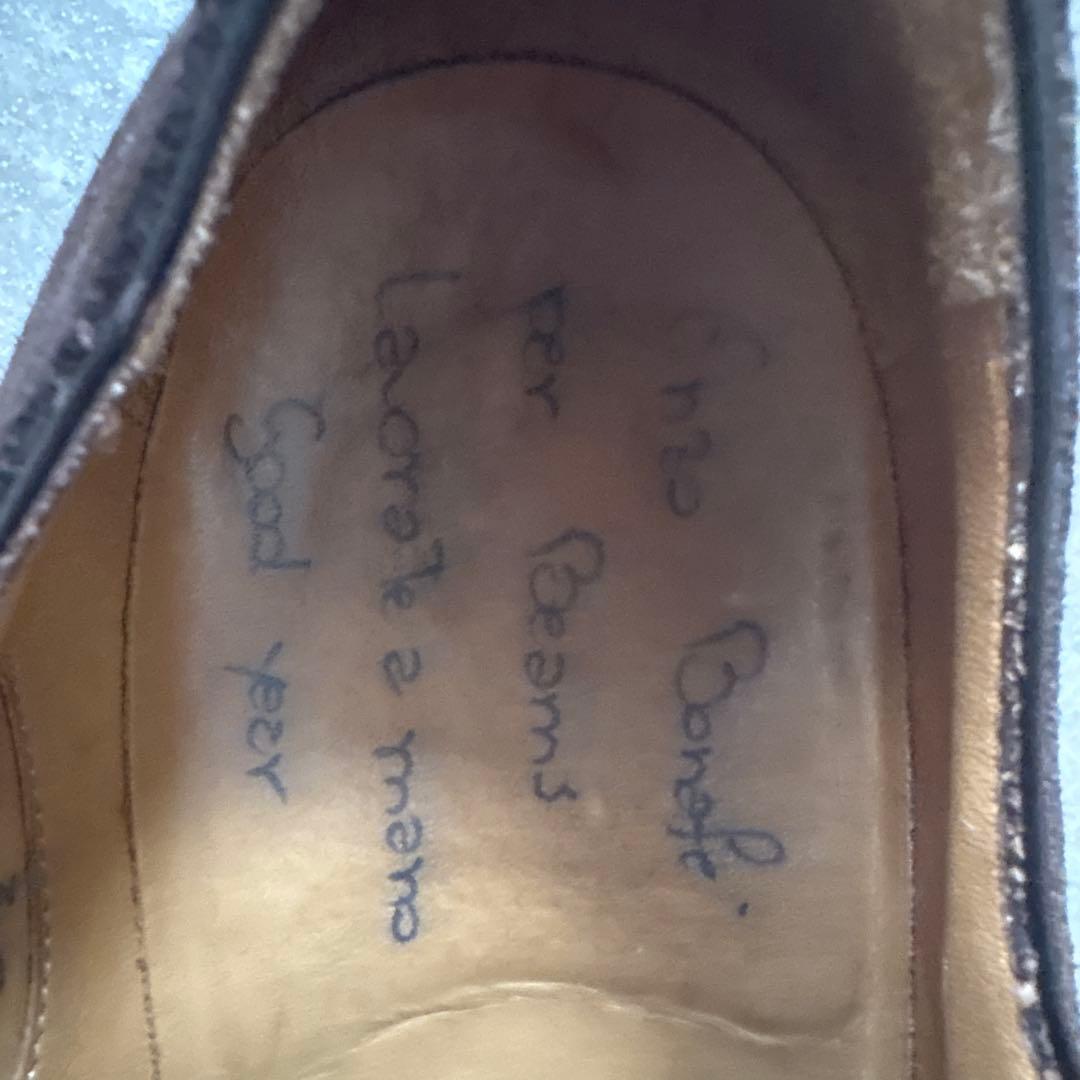 Enzo Bonafè
per Beams
Lavorato a mano
Good year